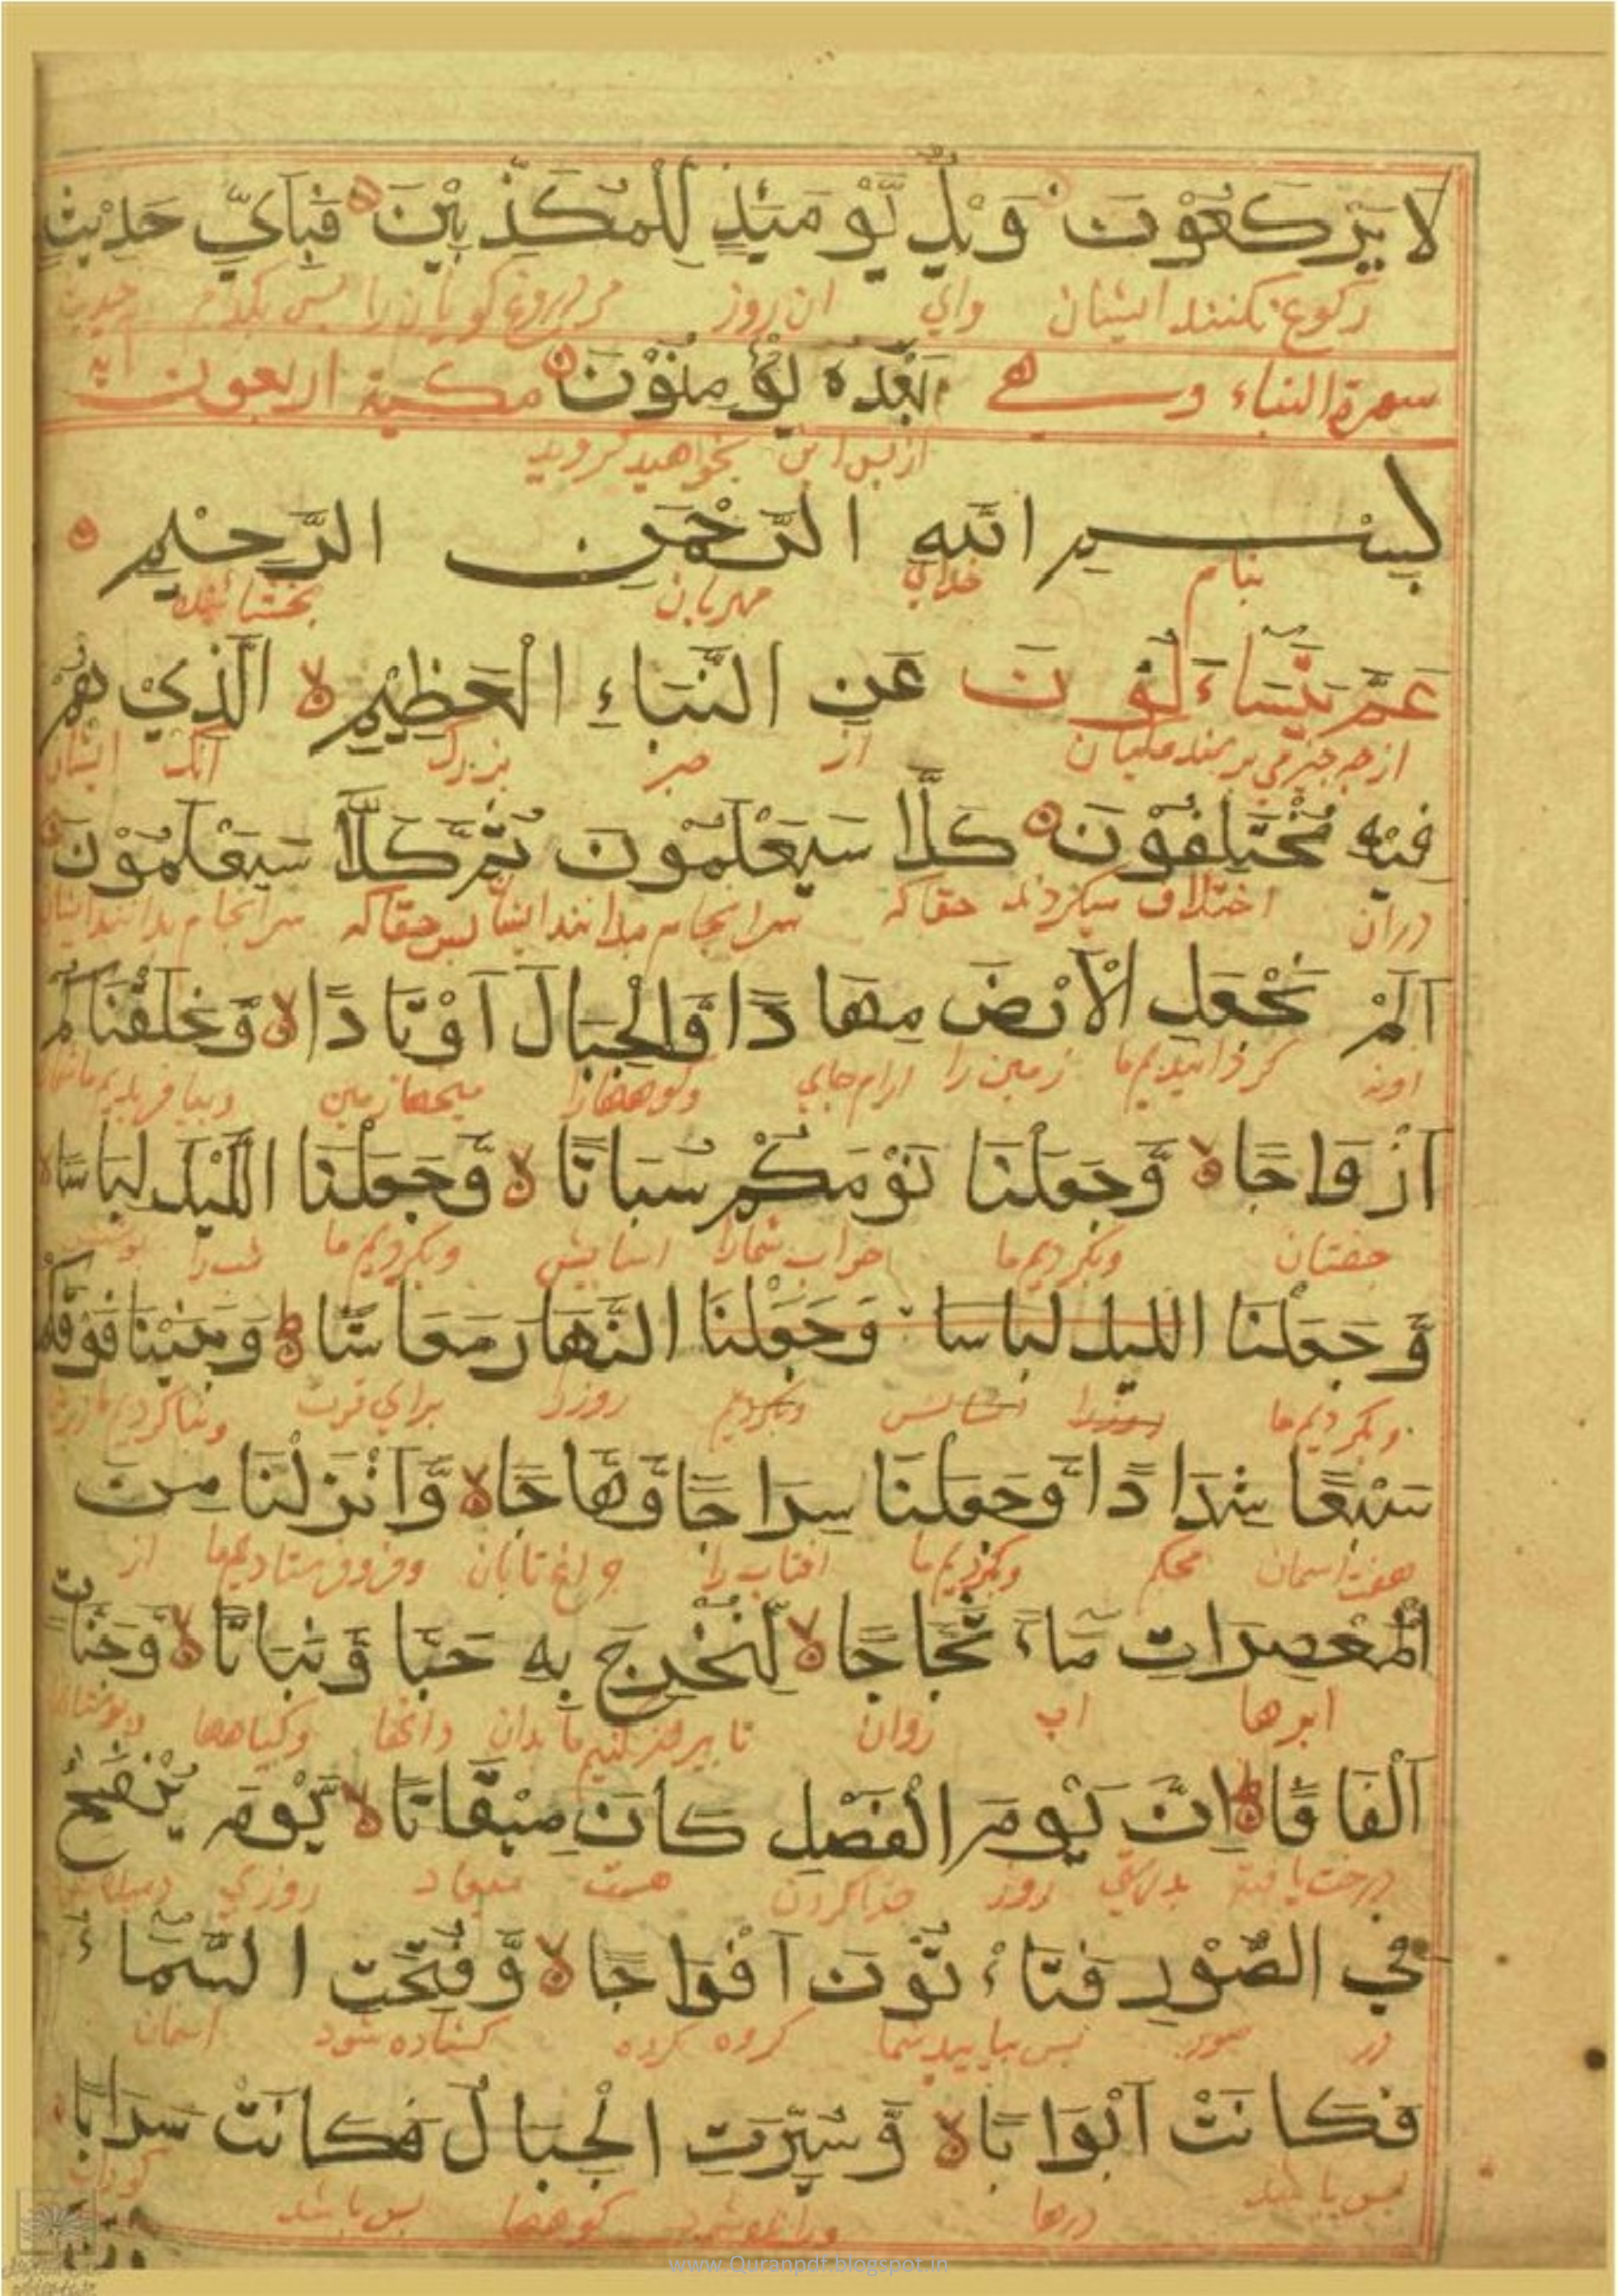 لَا يَرْكَعُوْنَ وَيْلٌ يَّوْمَئِذٍ لِّلْمُكَذِّبِيْنَ فَبِاَيِّ حَدِيْثٍ
ركوع نكنند ايشان واي ان روز مر دروغ كويان را پس بكدام حديث
سورة النباء وهي بَعْدَهٗ يُؤْمِنُوْنَ مكية اربعون اية
از پس اين بخواهيد كرويد
بِسْمِ اللهِ الرَّحْمٰنِ الرَّحِيْمِ
بنام خداي مهربان بخشاينده
عَمَّ يَتَسَاءَلُوْنَ عَنِ النَّبَاءِ الْعَظِيْمِ لا الَّذِيْ هُمْ
از چه چيز مي پرسند مكيان از خبر بزرك انك ايشان
فِيْهِ مُخْتَلِفُوْنَ كَلَّا سَيَعْلَمُوْنَ ثُمَّ كَلَّا سَيَعْلَمُوْنَ
دران اختلاف ميكردند حقا كه سرانجام بدانند ايشان پس حقا كه سرانجام بدانند ايشان
اَلَمْ نَجْعَلِ الْاَرْضَ مِهَادًا وَّالْجِبَالَ اَوْتَادًا لا وَّخَلَقْنَاكُمْ
كردانيديم ما زمين را ارام جاي وكوهها را ميخها زمين وبيافريديم ما شمارا
اَزْوَاجًا لا وَّجَعَلْنَا نَوْمَكُمْ سُبَاتًا لا وَّجَعَلْنَا اللَّيْلَ لِبَاسًا
جفتان وبكرديم ما خواب شمارا اسايش وبكرديم ما شب را پوشش
وَّجَعَلْنَا الليل لباسا وَجَعَلْنَا النَّهَارَ مَعَاشًا وَبَنَيْنَا فَوْقَكُمْ
وبكرديم ما روز را وبكرديم روز را براي
سَبْعًا شِدَادًا وَّجَعَلْنَا سِرَاجًا وَّهَّاجًا لا وَّاَنْزَلْنَا مِنَ
هفت اسمان محكم وبكرديم ما افتاب را چراغ تابان وفرو فرستاديم ما از
الْمُعْصِرَاتِ مَاءً ثَجَّاجًا لا لِّنُخْرِجَ بِهٖ حَبًّا وَّنَبَاتًا لا وَّجَنَّاتٍ
ابرها اب روان تا بيرون كنيم ما بدان دانها وكياهها وبوستانها
اَلْفَافًا اِنَّ يَوْمَ الْفَصْلِ كَانَ مِيْقَاتًا لا يَّوْمَ يُنْفَخُ
درخت يافته بدرستي روز جدا كردن هست ميعاد روزي
فِي الصُّوْرِ فَتَاْتُوْنَ اَفْوَاجًا لا وَّفُتِحَتِ السَّمَاءُ
در صور پس بياييد شما كروه كروه كشاده شود اسمان
فَكَانَتْ اَبْوَابًا لا وَّسُيِّرَتِ الْجِبَالُ فَكَانَتْ سَرَابًا
پس باشد درها كوهها پس باشد
www.Quranpdf.blogspot.in